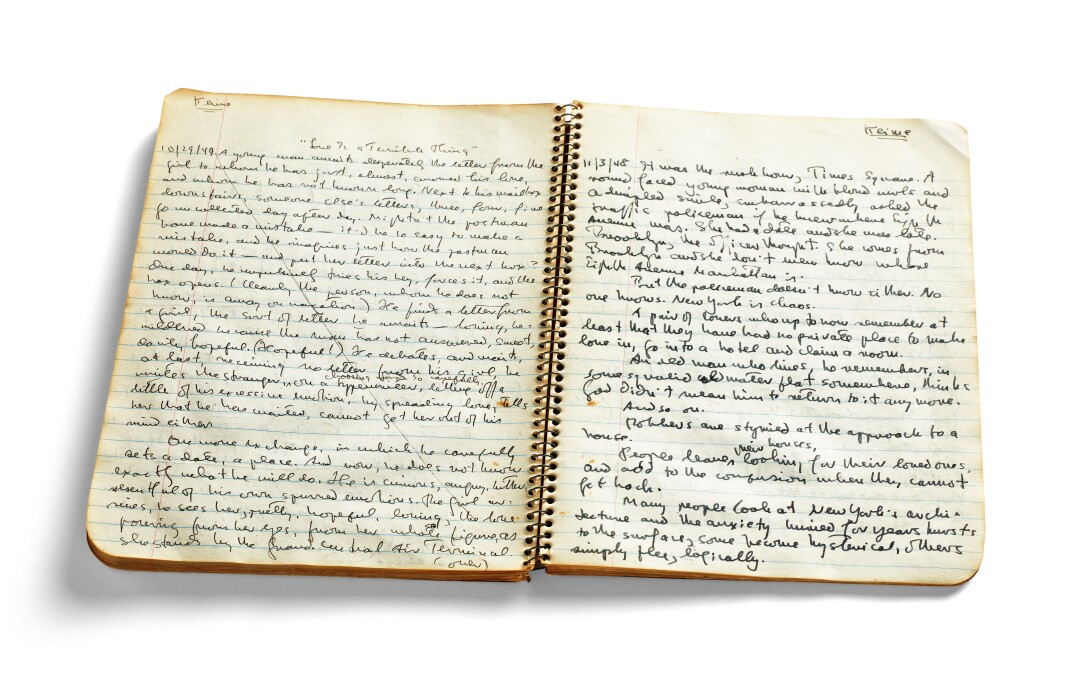 Keime
"Love Is a Terrible Thing"
10/29/49 A young man awaits desperately the letter from the
girl to whom he has just, almost, avowed his love,
and whom he has not known long. Next to his mailbox
downstairs, someone else's letters, three, four, five
go uncollected day after day. Mightn't the postman
have made a mistake — it'd be so easy to make a
mistake, and he imagines just how the postman
would do it — and put her letter into the next box?
One day, he impulsively tries his key, forces it, and the
box opens. (Clearly the person, whom he does not
know, is away on vacation.) He finds a letter from
a girl, the sort of letter he awaits — loving, be-
wildered because the man has not answered, sweet,
easily hopeful. (Hopeful!) He debates, and waits,
at last, receiving no letter from his girl, he
writes the stranger, on a typewriter, letting off a
choosing words so carefully,
little of his excessive emotion, by spreading love, tells
her that he has waited, cannot get her out of his
mind either.
One more exchange, in which he carefully
sets a date, a place. And now, he does not know
exactly what he will do. He is curious, angry, bitter
resentful of his own spurned emotions. The girl ar-
rives, he sees her, pretty, hopeful, loving, the love
pouring from her eyes, from her whole figure, as
she stands by the Grand Central Air Terminal
(over)
Keime
11/3/48 It was the rush hour, Times Square. A
round faced young woman with blond curls and
a dimpled smile, embarrassedly asked the
traffic policeman if he knew where Eighth
Avenue was. She had a date and she was late.
Brooklyn, the officer thought. She comes from
Brooklyn and she don't even know where
Eighth Avenue Manhattan is.
But the policeman doesn't know either. No
one knows. New York is chaos.
A pair of lovers who up to now remember at
least that they have had no private place to make
love in, go into a hotel and claim a room.
An old man who lives, he remembers, in
some squalid cold water flat somewhere, thinks
God didn't mean him to return to it any more.
And so on.
Robbers are stymied at the approach to a
house.
People leave their houses, looking for their loved ones,
and add to the confusion where they cannot
get back.
Many people look at New York's archi-
tecture and the anxiety hived for years bursts
to the surface, some become hysterical, others
simply flee, logically.